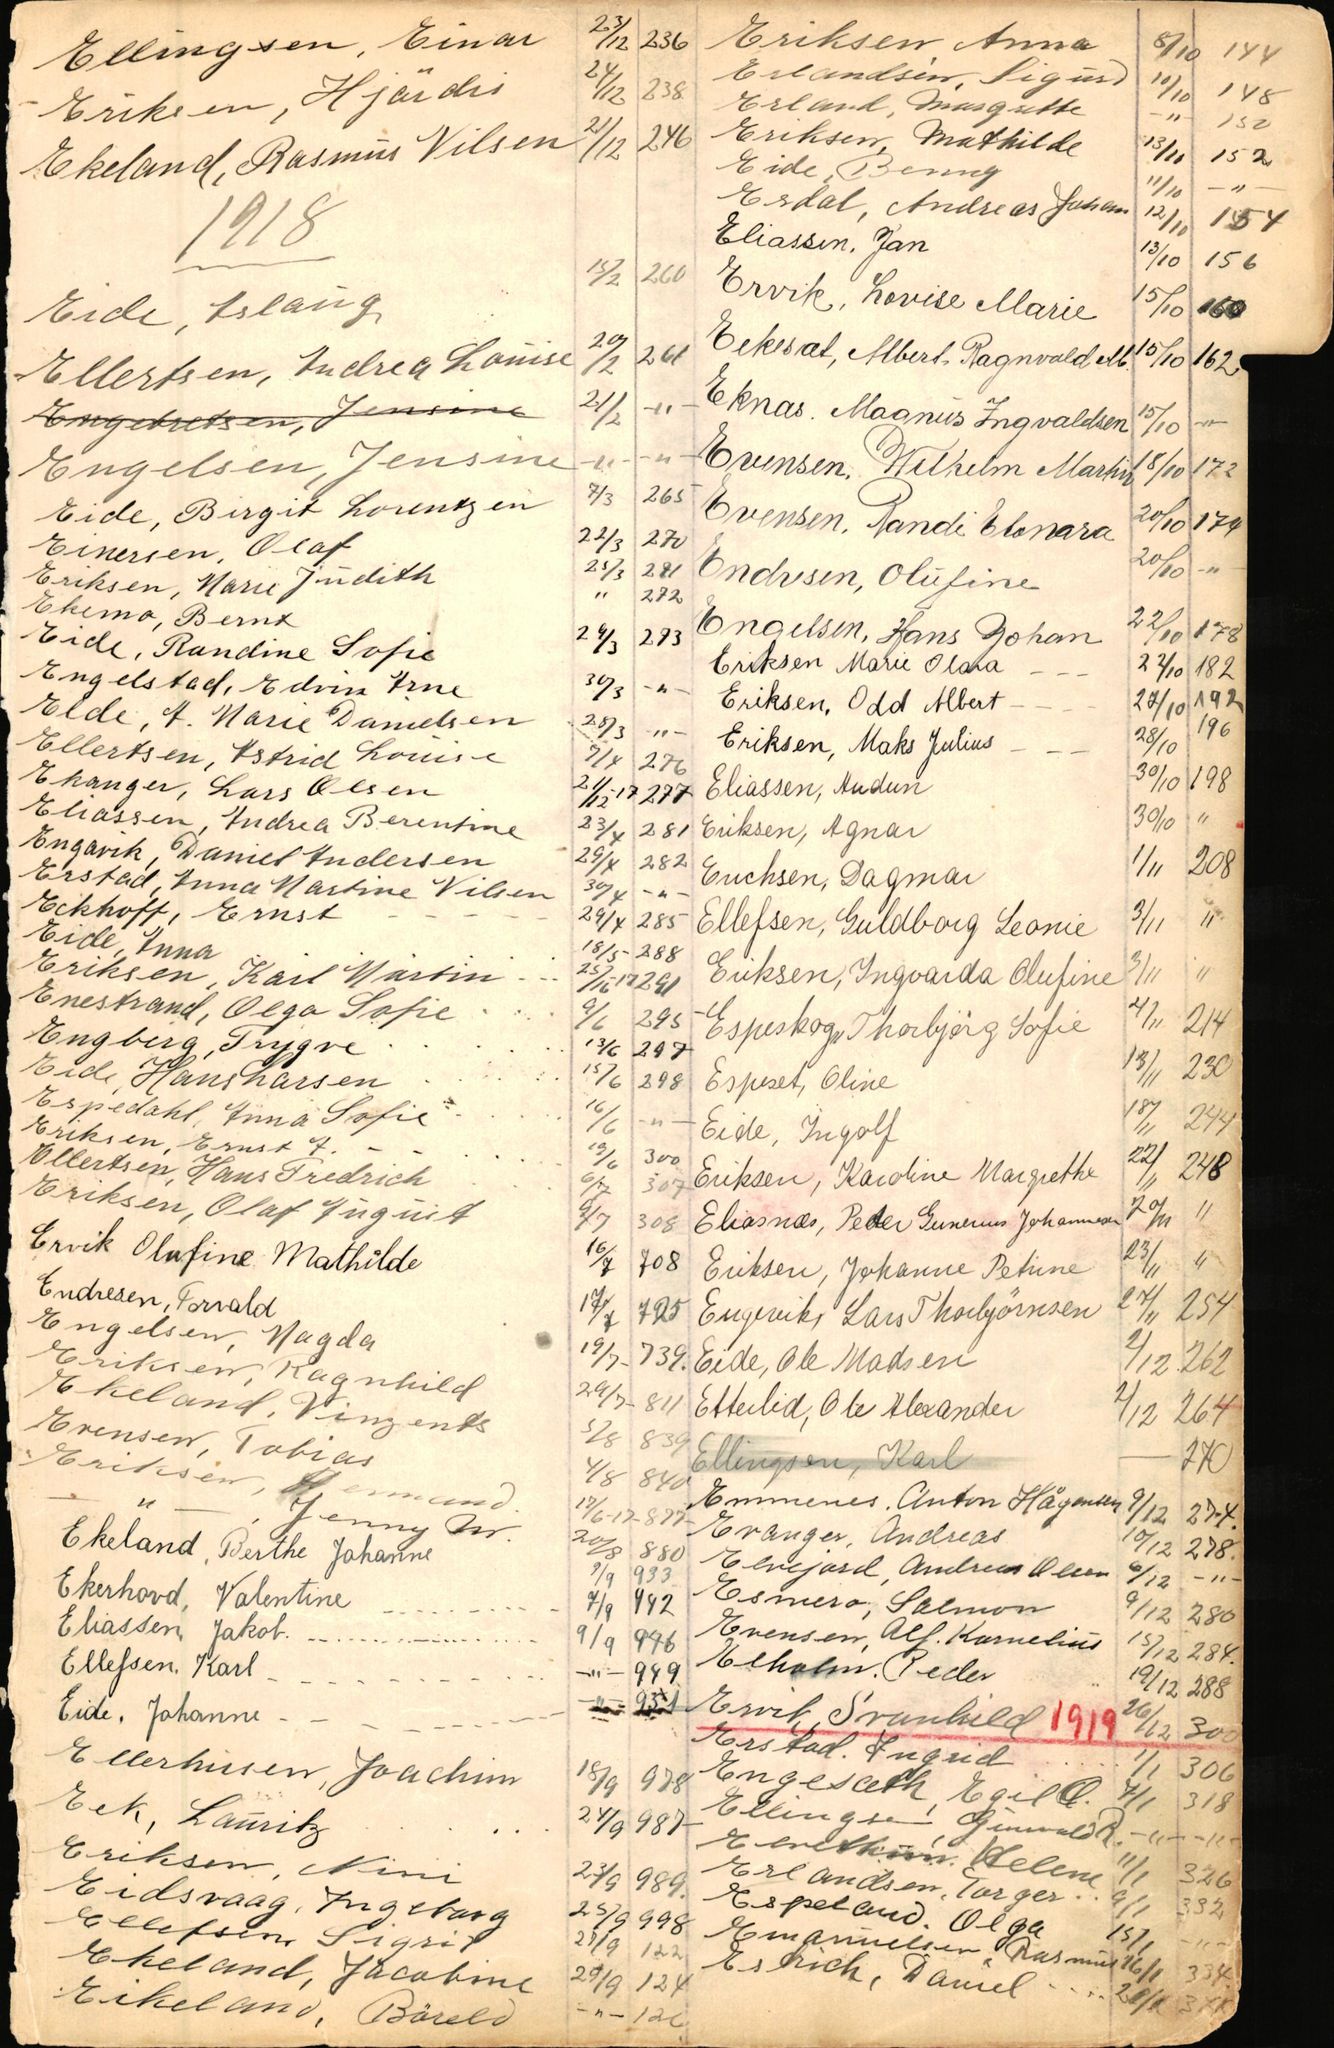 Ellingsen, Einar 23/12 236
Eriksen, Hjärdis 24/12 238
Ekeland, Rasmus Nilsen 21/12 246
1918
Eide, Aslaug 15/2 260
Ellertsen, Andrea Louise 20/2 261
Engebretsen, Jensine 21/2 -"-
Engelsen, Jensine -"- -"-
Eide, Birgit Lorentzen 7/3 265
Einersen, Olaf 22/3 270
Eriksen, Marie Judith 25/3 271
Ekemo, Bernt " 272
Eide, Randine Sofie 26/3 273
Engelstad, Edvin Arne 30/3 -"-
Eide, A. Marie Danielsen 28/3 -"-
Ellertsen, Astrid Louise 7/4 276
Ekanger, Lars Olsen 21/12-17 277
Eliassen, Andrea Berentine 23/4 281
Engavik, Daniel Andersen 29/4 282
Erstad, Anna Martine Nilsen 30/4 -"-
Eckhoff, Ernst 29/4 285
Eide, Anna 18/5 288
Eriksen, Karl Martin 291
Enestrand, Olga Sofie 9/6 295
Engberg, Trygve 13/6 297
Eide, Hans Larsen 15/6 298
Espedahl, Anna Sofie 16/6 -"-
Eriksen, Ernst A. 19/6 300
Ellertsen, Hans Fredrich 6/7 307
Eriksen, Olaf August 9/7 308
Ervik Olufine Mathilde 16/7 708
Endresen, Torvald 17/7 725
Engelsen, Magda 19/7 739.
Eriksen, Ragnhild 29/7 811
Ekeland, Vinzents 5/8 839
Evensen, Tobias 4/8 840
Eriksen, Hermand. 17/6-17 877
-"- Jenny M. 20/8 880
Ekeland, Berthe Johanne 9/9 933
Ekerhovd, Valentine 7/9 942
Eliassen, Jakob. 9/9 946
Ellefsen, Karl -"- 949
Eide, Johanne -"- 951
Ellerhusen, Joachim 18/9 978
Eek, Lauritz 24/9 987
Eriksen, Nini 23/9 989.
Eidsvaag, Ingeborg 25/9 998
Ellefsen, Sigrid 27/9 122
Ekeland, Jacobine 29/9 124
Eikeland, Bäreld -"- 126
Eriksen Anna 8/10 144
Erlandsen, Sigurd 10/10 148
Erland, Margrethe -"- 150
Eriksen, Mathilde 13/10 152
Eide, Benny 11/10 -"-
Erdal, Andreas Johan 12/10 154
Eliassen, Jan 13/10 156
Ervik, Lovise Marie 15/10 160
Eekesæt, Albert Ragnvald Alb. 15/10 162
Eknas. Magnus Ingvaldsen 15/10 -"-
Evensen, Wilhelm Martin 18/10 172
Evensen, Randi Elonara 20/10 174
Endresen, Olufine 20/10 -"-
Engelsen, Hans Johan 22/10 178
Eriksen Marie Olava 22/10 182
Eriksen, Odd Albert 27/10 192
Eriksen, Maks Julius 28/10 196
Eliassen, Audun 30/10 198
Eriksen, Agnar 30/10 "
Erichsen, Dagmar 1/11 208
Ellefsen, Guldborg Leonie 3/11 "
Eriksen, Ingvarda Olufine 3/11 "
Espeskog, Thorbjörg Sofie 4/11 214
Espeset, Oline 13/11 230
Eide, Ingolf 18/11 244
Eriksen, Karoline Margrethe 22/11 248
Eliasnæs, Peder Gunerius Johannesen 20/11 "
Eriksen, Johanne Petrine 23/11 "
Engevik, Lars Thorbjørnsen 27/11 254
Eide, Ole Madsen 2/12 262
Etterlid, Ole Alexander 2/12 264
Ellingsen, Karl — 270
Emmenes. Anton Hågensen 9/12 274.
Evanger, Andreas 10/12 278.
Elvejord, Andreas Olsen 6/12 -"-
Esmero, Salmon 9/12 280
Evensen, Alf. Kornelius 15/12 284.
Elholm. Peder 19/12 288
Ervik, Svanhild 26/12 300
1919
Erstad. Ingrid 1/1 306
Engesæth, Egil O. 7/1 318
Ellingsen, Gunvald R. -"- -"-
Helene 11/1 326
Erlandsen, Torger 9/1 332
Espeland. Olga 15/1 -"-
Emanuelsen, Rasmus 16/1 334.
Esrich, Daniel 20/1